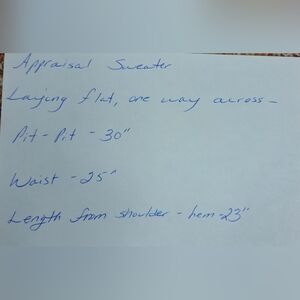 Appraisal Sweater
Laying flat, one way across -
Pit - Pit - 30"
Waist - 25"
Length from shoulder - hem - 23"